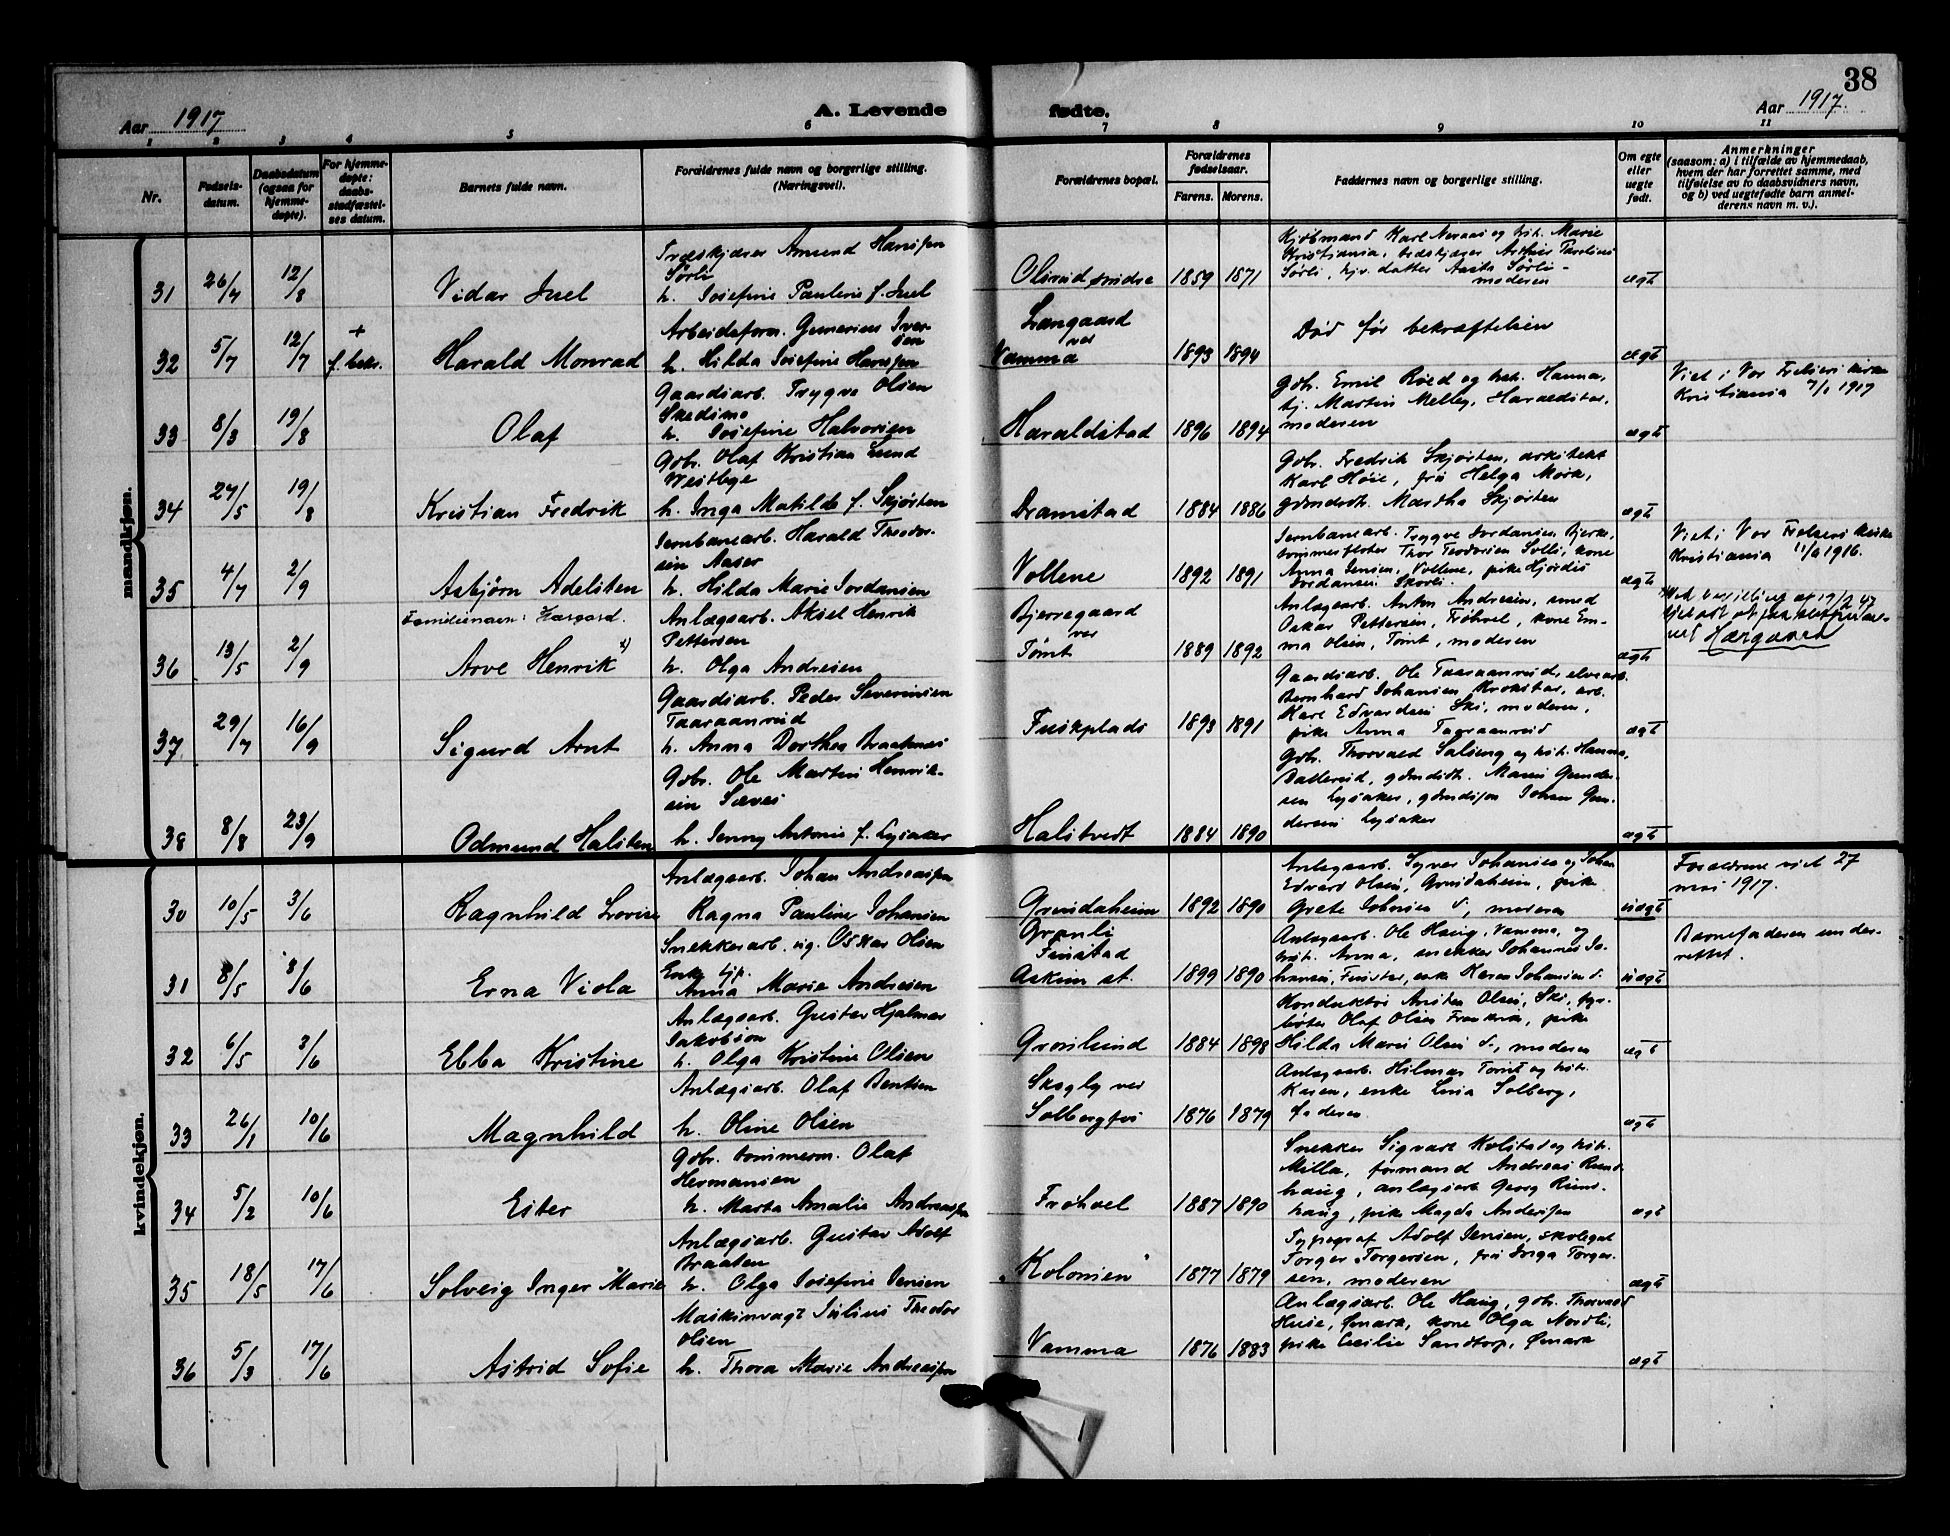 38
Aar 1917
A. Levende
fødte.
Aar 1917.
1 2 3 4 5 6 7 8 9 10 11
Nr.
Fødsels-
datum.
Daabsdatum
(ogsaa for
hjemme-
døpte).
For hjemme-
døpte:
daabs-
stadfæstel-
ses datum.
Barnets fulde navn.
Forældrenes fulde navn og borgerlige stilling.
(Næringsvei).
Forældrenes bopæl.
Forældrenes
fødselsaar.
Farens. Morens.
Faddernes navn og borgerlige stilling.
Om egte
eller
uegte
født.
Anmerkninger
(saasom: a) i tilfælde av hjemmedaab,
hvem der har forrettet samme, med
tilføielse av to daabsvidners navn,
og b) ved uegtefødte barn anmel-
derens navn m. v.).
mandkjøn.
31 26/7 12/8 Vidar Juel
Træskjærer Amund Hanssen
Sørli
h. Josefine Pauline f. Juel
Olsrud søndre 1859 1871
Kjøbmand Karl Neraas og hst. Marie
Kristiania, træskjærer Arthur Paulius
Sørli, hjv. datter Aasta Sørli -
moderen
ægt
32 5/7 12/7 + f. bekr. Harald Monrad
Arbeidsform. Gunerius Iver-
sen
h. Hilda Josefine Hanssen
Langaard
ved
Vamma 1893 1894
Død før bekræftelsen
ægt
33 8/3 19/8 Olaf
Gaardsarb. Trygve Olsen
Skedsmo
h. Josefine Halvorsen
Haraldstad 1896 1894
Gbr. Emil Røed og hst. Hanna,
tj. Martin Melley, Haraldstad,
moderen
ægt
Viet i Vor Frelsers kirke
Kristiania 7/1 1917
34 27/5 19/8 Kristian Fredrik
Gbr. Olaf Kristian Lund
Westbye
h. Inga Matilde f. Skjørten
Dramstad 1884 1886
Gbr. Fredrik Skjørten, arkitekt
Karl Høie, frk Helga Mørk,
gdmdatt. Martha Skjørten
ægt
35 4/7 2/9 Asbjørn Adelsten
Jernbanearb. Harald Theodor-
sen Aaser
h. Hilda Marie Jordansen
Vollene 1892 1891
Jernbanearb. Trygve Jordansen Bjerke,
tømmerfløter Thor Teodorsen Solli, kone
Anna Jensen, Vollene, pike Hjørdis
Jordansen Skorli.
ægt
Viet i Vor Frelsers kirke
Kristiania 11/6 1916.
Familienavn: Hærgaard.
36 13/5 2/9 Arve Henrik x)
Anlægsarb. Aksel Henrik
Pettersen
h. Olga Andresen
Bjerregaard
ved
Tømt 1889 1892
Anlægsarb. Anton Andresen, smed
Oskar Pettersen, Frøhvel, kone Em-
ma Olsen, Tømt, moderen
ægt
37 29/7 16/9 Sigurd Arnt
Gaardsarb. Peder Severinsen
Taaraanrud
h. Anna Dorthea Braatenes
Fuskplads 1893 1891
Gaardsarb. Ole Taaraanrud, elvearb.
Bernhard Johansen Krokstad, arb.
Karl Edvardsen Ski, moderen,
pike Anna Taaraanrud
ægt
38 8/8 23/9 Odmund Halsten
Gbr. Ole Martin Henrik-
sen Sæves
h. Jenny Antonie f. Lysaker
Halstvedt 1884 1890
Gbr. Thorvald Salberg og hst. Hanna,
gdmdtt. Maren Gunder-
sen Lysaker, gdmdssøn Johan Gun-
dersen Lysaker
ægt
kvindekjøn.
30 10/5 3/6 Ragnhild Lovise
Anlægsarb. Johan Andreassen
Ragna Pauline Johansen
Grindaheim 1892 1890
Anlægsarb. Syver Johansen og Johan
Edvard Olsen, Grindaheim, pike
Grete Johnsen s., moderen
uægt
Forældrene viet 27
mai 1917.
31 8/5 3/6 Erna Viola
Snekkerarb. ug. Oskar Olsen
Enke tjp.
Anna Marie Andresen
Grønli
Finstad
Askim st. 1899 1890
Anlægsarb. Ole Haug, Vamma, og
hst. Anna, snekker Johannes Jo-
hansen, Finstad, enke Karen Johansen s.
uægt
Barnefaderen under-
rettet.
32 6/5 3/6 Ebba Kristine
Anlægsarb. Gustav Hjalmar
Jakobsson
h. Olga Kristine Olsen
Grønlund 1884 1898
Konduktør Anston Olsen, Ski, fyr-
bøter Olaf Olsen Fredrik, pike
Hilda Marie Olsen s., moderen
ægt
33 26/1 10/6 Magnhild
Anlægsarb. Olaf Bentsen
h. Oline Olsen
Skogly ved
Solbergfos 1876 1879
Anlægsarb. Hilmar Tømt og hst.
Karen, enke Lina Solberg,
faderen
ægt
34 5/2 10/6 Ester
Gbr. tømmerm. Olaf
Hermansen
h. Marta Amalie Andreassen
Frøhvel 1887 1890
Snekker Sigvart Kolstad og hst.
Milla, formand Andreas Rund-
haug, anlægsarb Georg Rund-
haug, pike Magda Andersen
ægt
35 18/5 17/6 Solveig Inger Marie
Anlægsarb. Gustav Adolf
Braaten
h. Olga Josefine Jensen
„Kolonien" 1877 1879
Typograf Adolf Jensen, skolegut
Torger Torgersen, frk Inga Torger-
sen, moderen
ægt
36 5/3 17/6 Astrid Sofie
Maskinvagt Julius Theodor
Olsen
h. Thora Marie Andreassen
Vamma 1876 1883
Anlægsarb. Ole Haug, gbr. Thorvald
Huse, Ømark, kone Olga Nordli,
pike Cecilie Sandtorp, Ømark
ægt